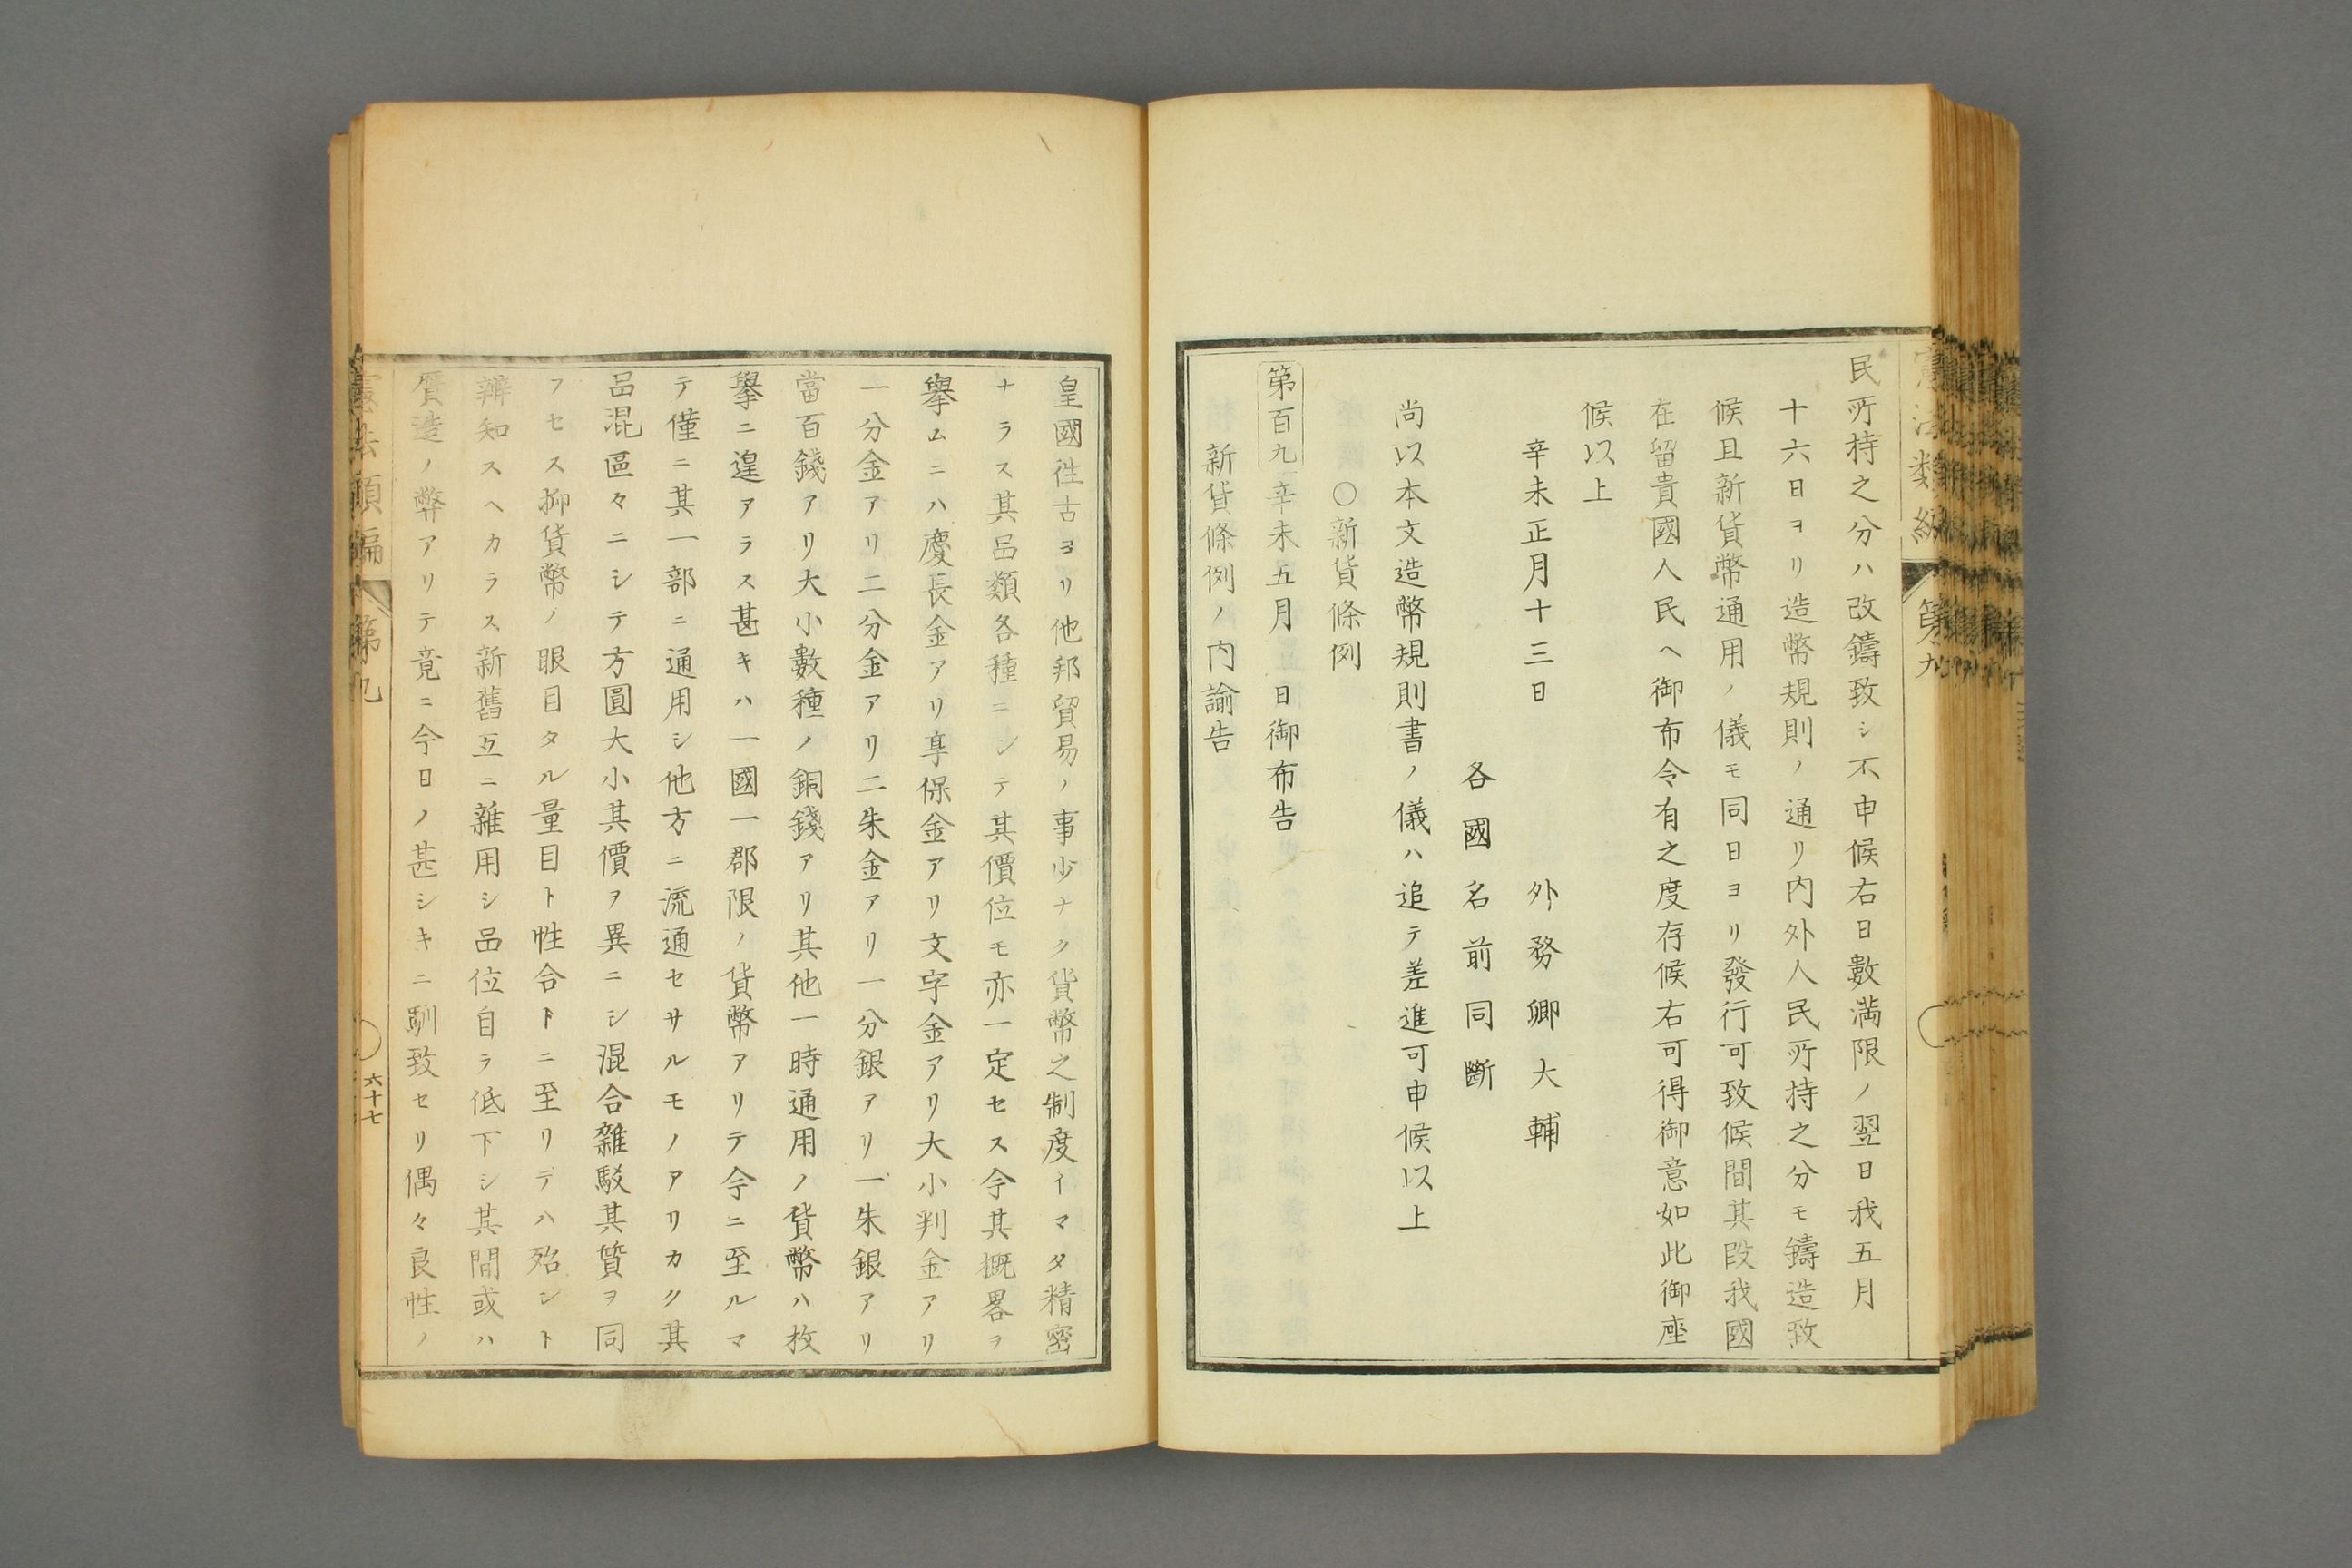 憲法類編
第九
民所持之分ハ改鑄致シ不申候右日數滿限ノ翌日我五月
十六日ヨリ造幣規則ノ通リ内外人民所持之分モ鑄造致
候且新貨幣通用ノ儀モ同日ヨリ發行可致候間其段我國
在留貴國人民ヘ御布令有之度存候右可得御意如此御座
候以上
辛未正月十三日 外務卿大輔
各國名前同斷
尚以本文造幣規則書ノ儀ハ追テ差進可申候以上
○新貨條例
第百九 辛未五月 日御布告
新貨條例ノ内諭告
皇國徃古ヨリ他邦貿易ノ事少ナク貨幣之制度イマタ精密
ナラス其品類各種ニシテ其價位モ亦一定セス今其概畧ヲ
擧ムニハ慶長金アリ享保金アリ文字金アリ大小判金アリ
一分金アリ二分金アリ二朱金アリ一分銀アリ一朱銀アリ
當百錢アリ大小數種ノ銅錢アリ其他一時通用ノ貨幣ハ枚
擧ニ遑アラス甚キハ一國一郡限ノ貨幣アリテ今ニ至ルマ
テ僅ニ其一部ニ通用シ他方ニ流通セサルモノアリカク其
品混區々ニシテ方圓大小其價ヲ異ニシ混合雜駁其質ヲ同
フセス抑貨幣ノ眼目タル量目ト性合トニ至リテハ殆ント
辨知スヘカラス新舊互ニ雜用シ品位自ラ低下シ其間或ハ
贋造ノ弊アリテ竟ニ今日ノ甚シキニ馴致セリ偶々良性ノ
憲法類編
第九
六十七